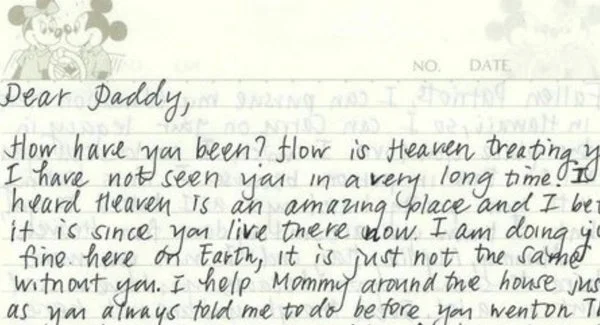 NO. DATE
Dear Daddy,
How have you been? How is Heaven treating y
I have not seen you in a very long time. I
heard Heaven is an amazing place and I bet
it is since you live there now. I am doing
fine here on Earth, it is just not the same
without you. I help Mommy around the house jus
as you always told me to do before you went on